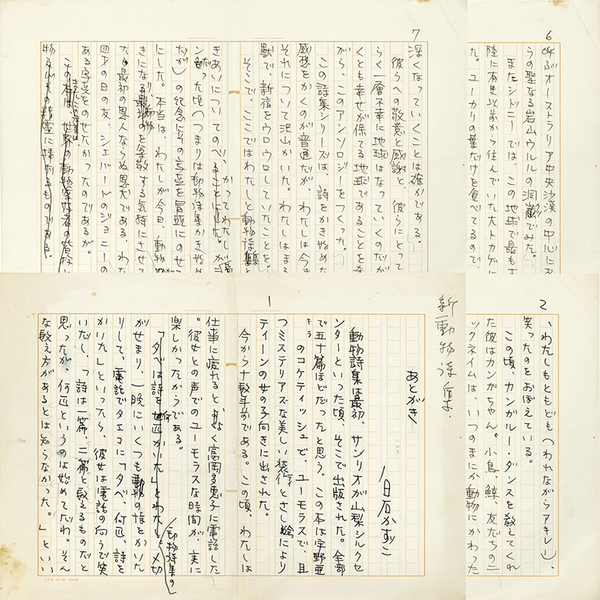 1
新・動物詩集
あとがき
白石かずこ
動物詩集は最初、サンリオが山梨シルクセ
ンターといった頃、そこで出版された。全部
で五十篇ほどだったと思う。この本は宇野亜
のコケティッシュで、ユーモラスで、且
つミステリアスな美しい装幀とさし絵により
ティーンの女の子向きに出された。
今から十数年前である。この頃、わたしは
仕事に疲れると、よく富岡多恵子に電話した
。彼女との声でのユーモラスな時間が、実に
楽しかったからである。
「夕べは詩を四匹かいた」とわたし(動物詩集の〆切
がせまり、一晩にいくつも動物の詩をかいた
りして、電話でタエコに「夕べ、何匹、詩を
かいた」といったら、彼女は電話の向うで笑
いだし、「詩は一篇、二篇と数えるものだと
思ったが、何匹というのは始めてだわ、そん
な数え方があるとは知らなかった。」とい
2
、わたしもともども われながらアキレ」、
笑ったのをおぼえている。
この頃、カンガルー・ダンスを教えてくれ
た彼はカンガちゃん。小鳥、鯨、友だちのニ
ックネームは、いつのまにか動物にかわった
6
呼ぶオーストラリア中央沙漠の中心に
らの聖なる岩山ウルルの洞窟でみた。
またシドニーでは、この地球で最も
陸に有史以前から住んでいた大トカゲに
た。ユーカリの葉だけを食べてるので、
7
深くなっていくことは確かである。
彼らへの敬意と感謝と、彼らにとって
らく一層不幸に地球はなっていくのだが
くとも幸せが保てる地球であることを
がら、このアンソロジーをつくった。
この詩集シリーズは、詩をかき始めた
感想をかくのが普通だが、わたしは今ま
それについて沢山かいた。わたしはまる
獣で、新宿をウロウロしていたことを。
そこで、ここではわたしと動物
きあいについてのべることにした。
た頃(つまりは動物詩集かき始め
だが)の記念にこの写真を冒頭にのせ
にした。本当は、わたしが今日、動物
きになる
を余数する気持にさせ
た最初の恩人ならぬ恩犬である、わた
四才の日の友、シェパードのジョニーの
ある写真をのせたかったのであるが。
この本は、世界の動物